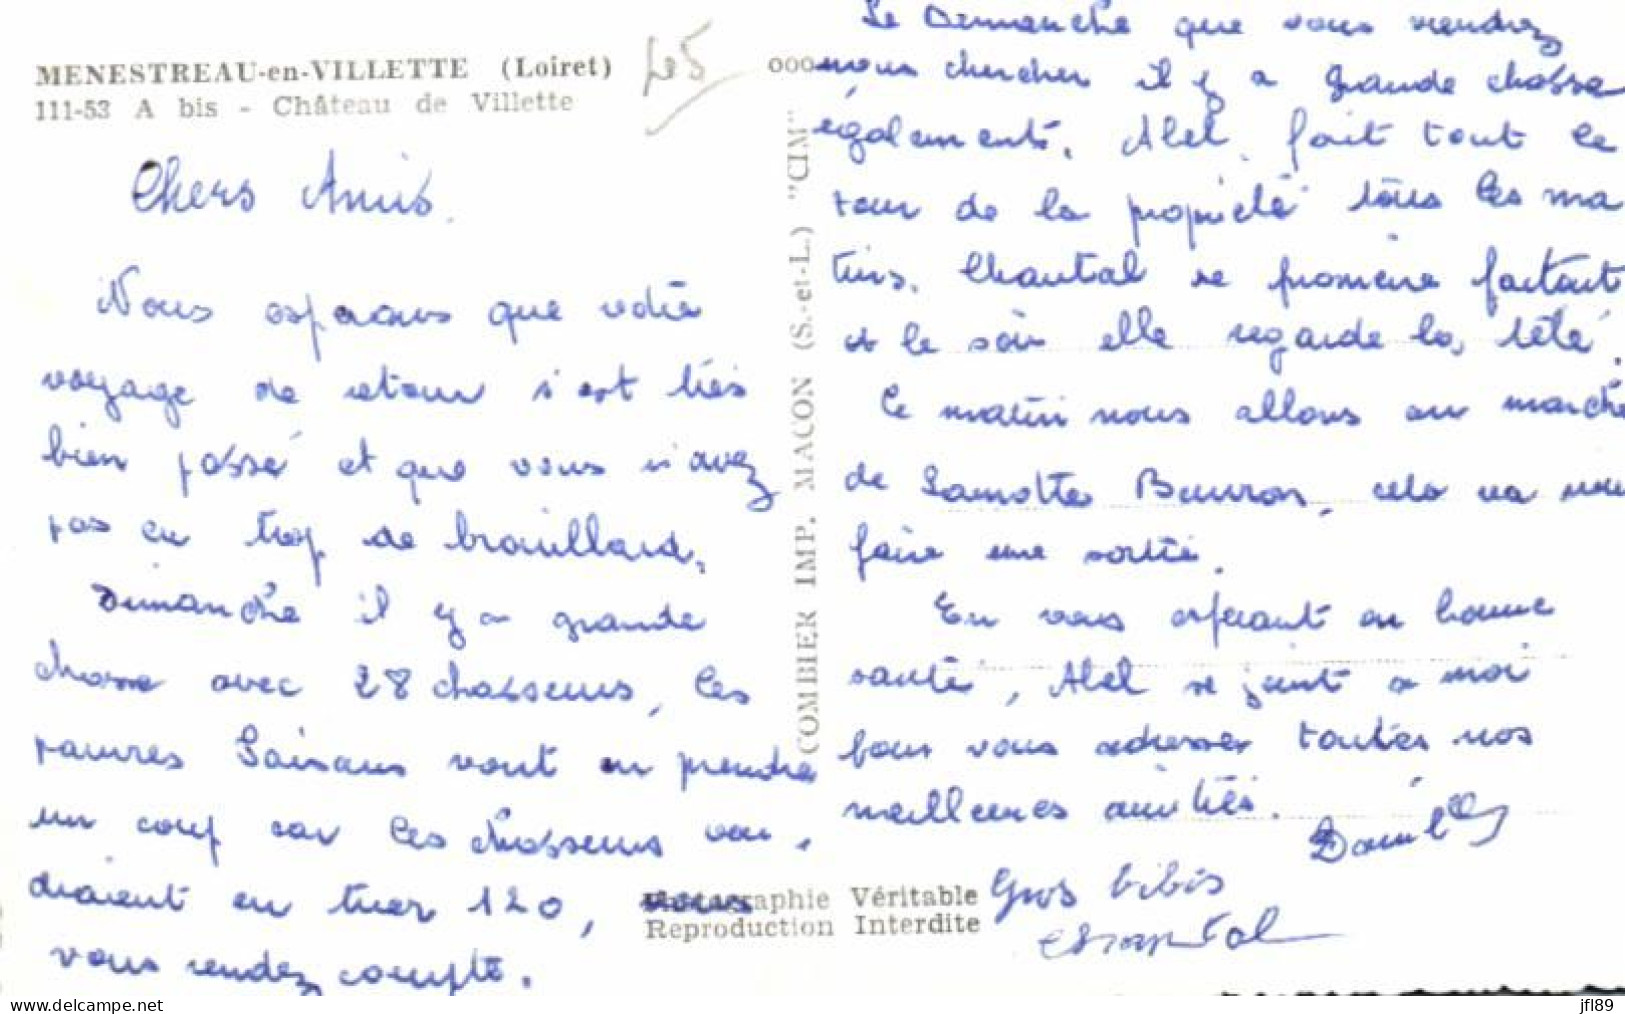 MENESTREAU-en-VILLETTE (Loiret)
111-53 A bis - Château de Villette
Chers Amis.
Nous esperons que votre
voyage de retour s'est très
bien passé et que vous n'avez
pas eu trop de brouillard.
Dimanche il y a grande
chasse avec 28 chasseurs, les
pauvres Faisans vont en prendre
un coup car les chasseurs vou-
draient en tuer 120,
vous rendez compte.
COMBIER IMP. MACON (S.-et-L.) "CIM"
Photographie Véritable
Reproduction Interdite
Le Dimanche que vous viendrez
nous chercher il y a grande chasse
également. Abel fait tout le
tour de la propriété tous les ma
tins. Chantal se promène partout
et le soir elle regarde la télé.
Ce matin nous allons au marché
de Lamotte Beuvron, cela va nous
faire une sortie.
En vous esperant en bonne
santé, Abel se joint a moi
pour vous adresser toutes nos
meilleures amitiés.
Gros bibis
Chantal
jfl89
www.delcampe.net